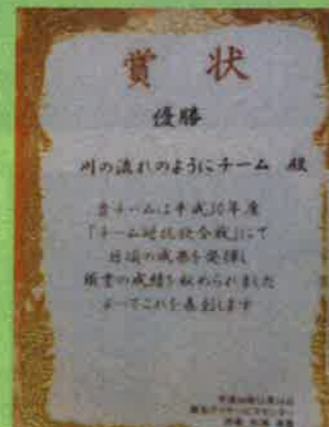 賞状
優勝
川の流れのようにチーム 殿
貴チームは平成30年度
「チーム対抗歌合戦」にて
日頃の成果を発揮し
頭書の成績を収められました
よってこれを表彰します